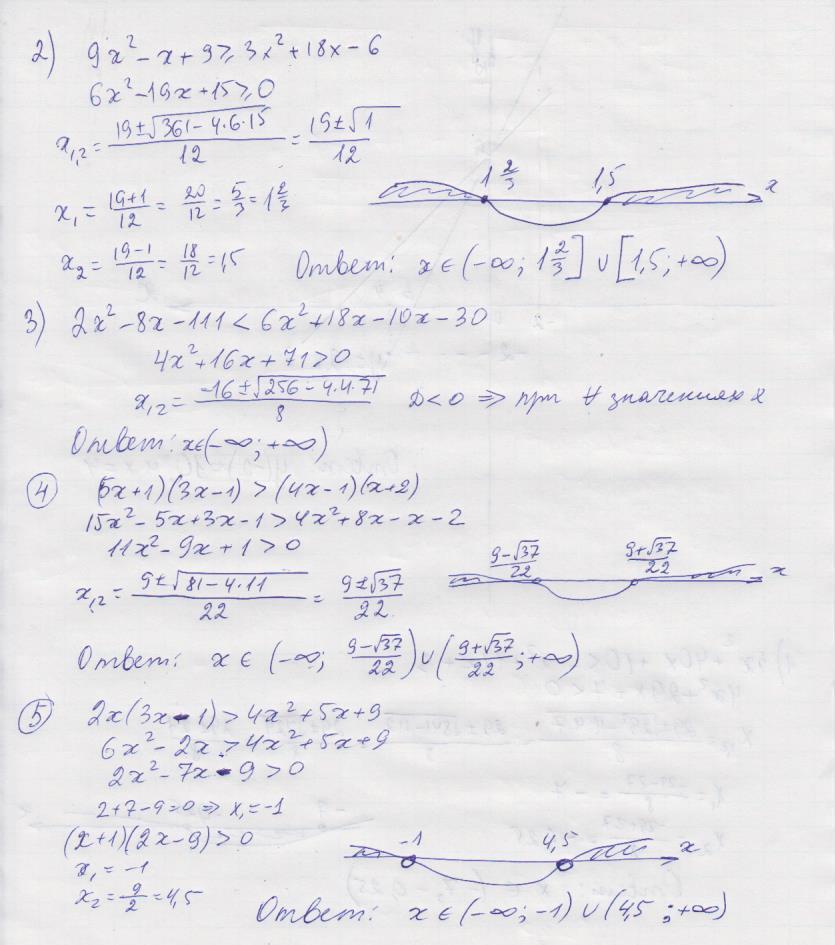 2) 9x² - x + 9 ≥ 3x² + 18x - 6
6x² - 19x + 15 ≥ 0
x₁,₂ = (19 ± √(361 - 4·6·15))/12 = (19 ± √1)/12
x₁ = (19+1)/12 = 20/12 = 5/3 = 1 2/3
1 2/3 1,5 x
x₂ = (19-1)/12 = 18/12 = 1,5 Ответ: x ∈ (-∞; 1 2/3] ∪ [1,5; +∞)
3) 2x² - 8x - 111 < 6x² + 18x - 10x - 30
4x² + 16x + 71 > 0
x₁,₂ = (-16 ± √(256 - 4·4·71))/8 D < 0 ⇒ при ∀ значениях x
Ответ: x ∈ (-∞; +∞)
4 (5x+1)(3x-1) > (4x-1)(x+2)
15x² - 5x + 3x - 1 > 4x² + 8x - x - 2
11x² - 9x + 1 > 0
x₁,₂ = (9 ± √(81 - 4·11))/22 = (9 ± √37)/22
(9-√37)/22 (9+√37)/22 x
Ответ: x ∈ (-∞; (9-√37)/22) ∪ ((9+√37)/22; +∞)
5 2x(3x - 1) > 4x² + 5x + 9
6x² - 2x > 4x² + 5x + 9
2x² - 7x - 9 > 0
2+7-9=0 ⇒ x₁ = -1
(x+1)(2x-9) > 0
x₁ = -1
-1 4,5 x
x₂ = 9/2 = 4,5
Ответ: x ∈ (-∞; -1) ∪ (4,5; +∞)